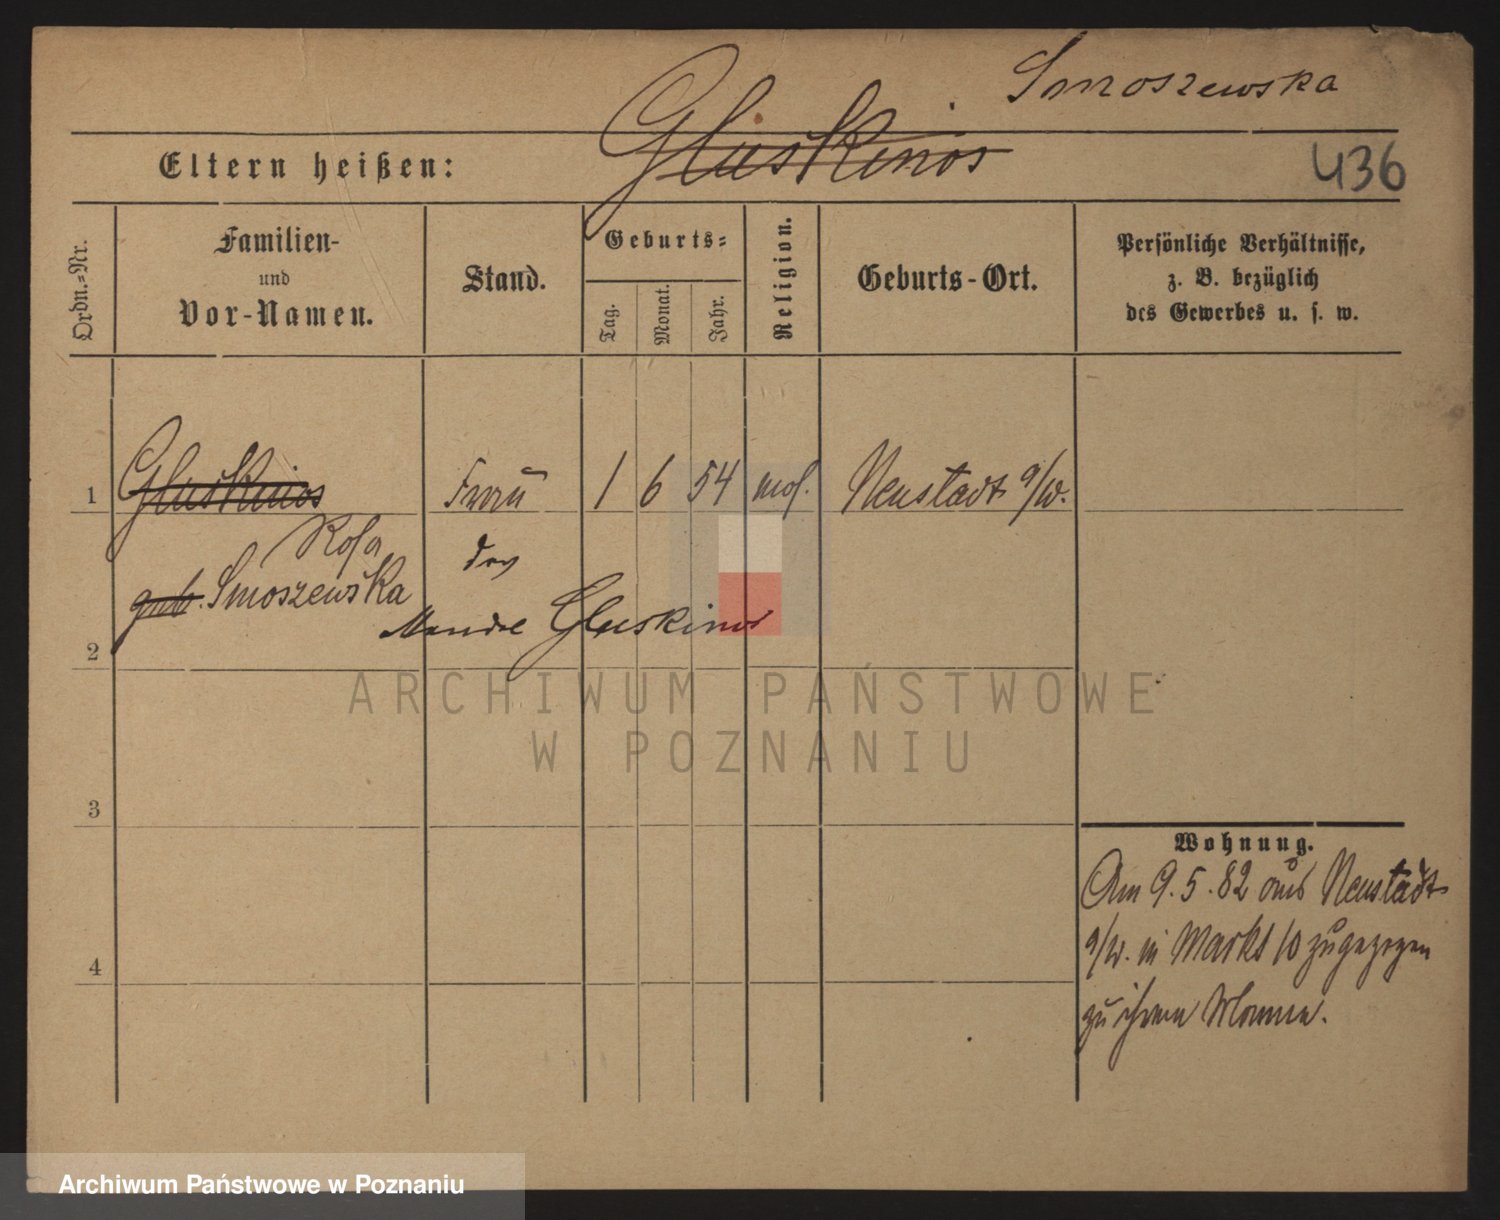 Smoszewska
Eltern heißen: Gluskinos
436
Ordn.=Nr.
Familien-
und
Vor-Namen.
Stand.
Geburts=
Tag.
Monat.
Jahr.
Religion.
Geburts-Ort.
Persönliche Verhältnisse,
z. B. bezüglich
des Gewerbes u. s. w.
1 Gluskinos Frau 1 6 54 mos. Neustadt a/W.
Rosa des
geb. Smoszewska
Mendel Gluskinos
2
3
4
Wohnung.
Am 9.5.82 aus Neustadt
a/W. in Markt 10 zugezogen
zu ihrem Manne.
ARCHIWUM PAŃSTWOWE
W POZNANIU
Archiwum Państwowe w Poznaniu